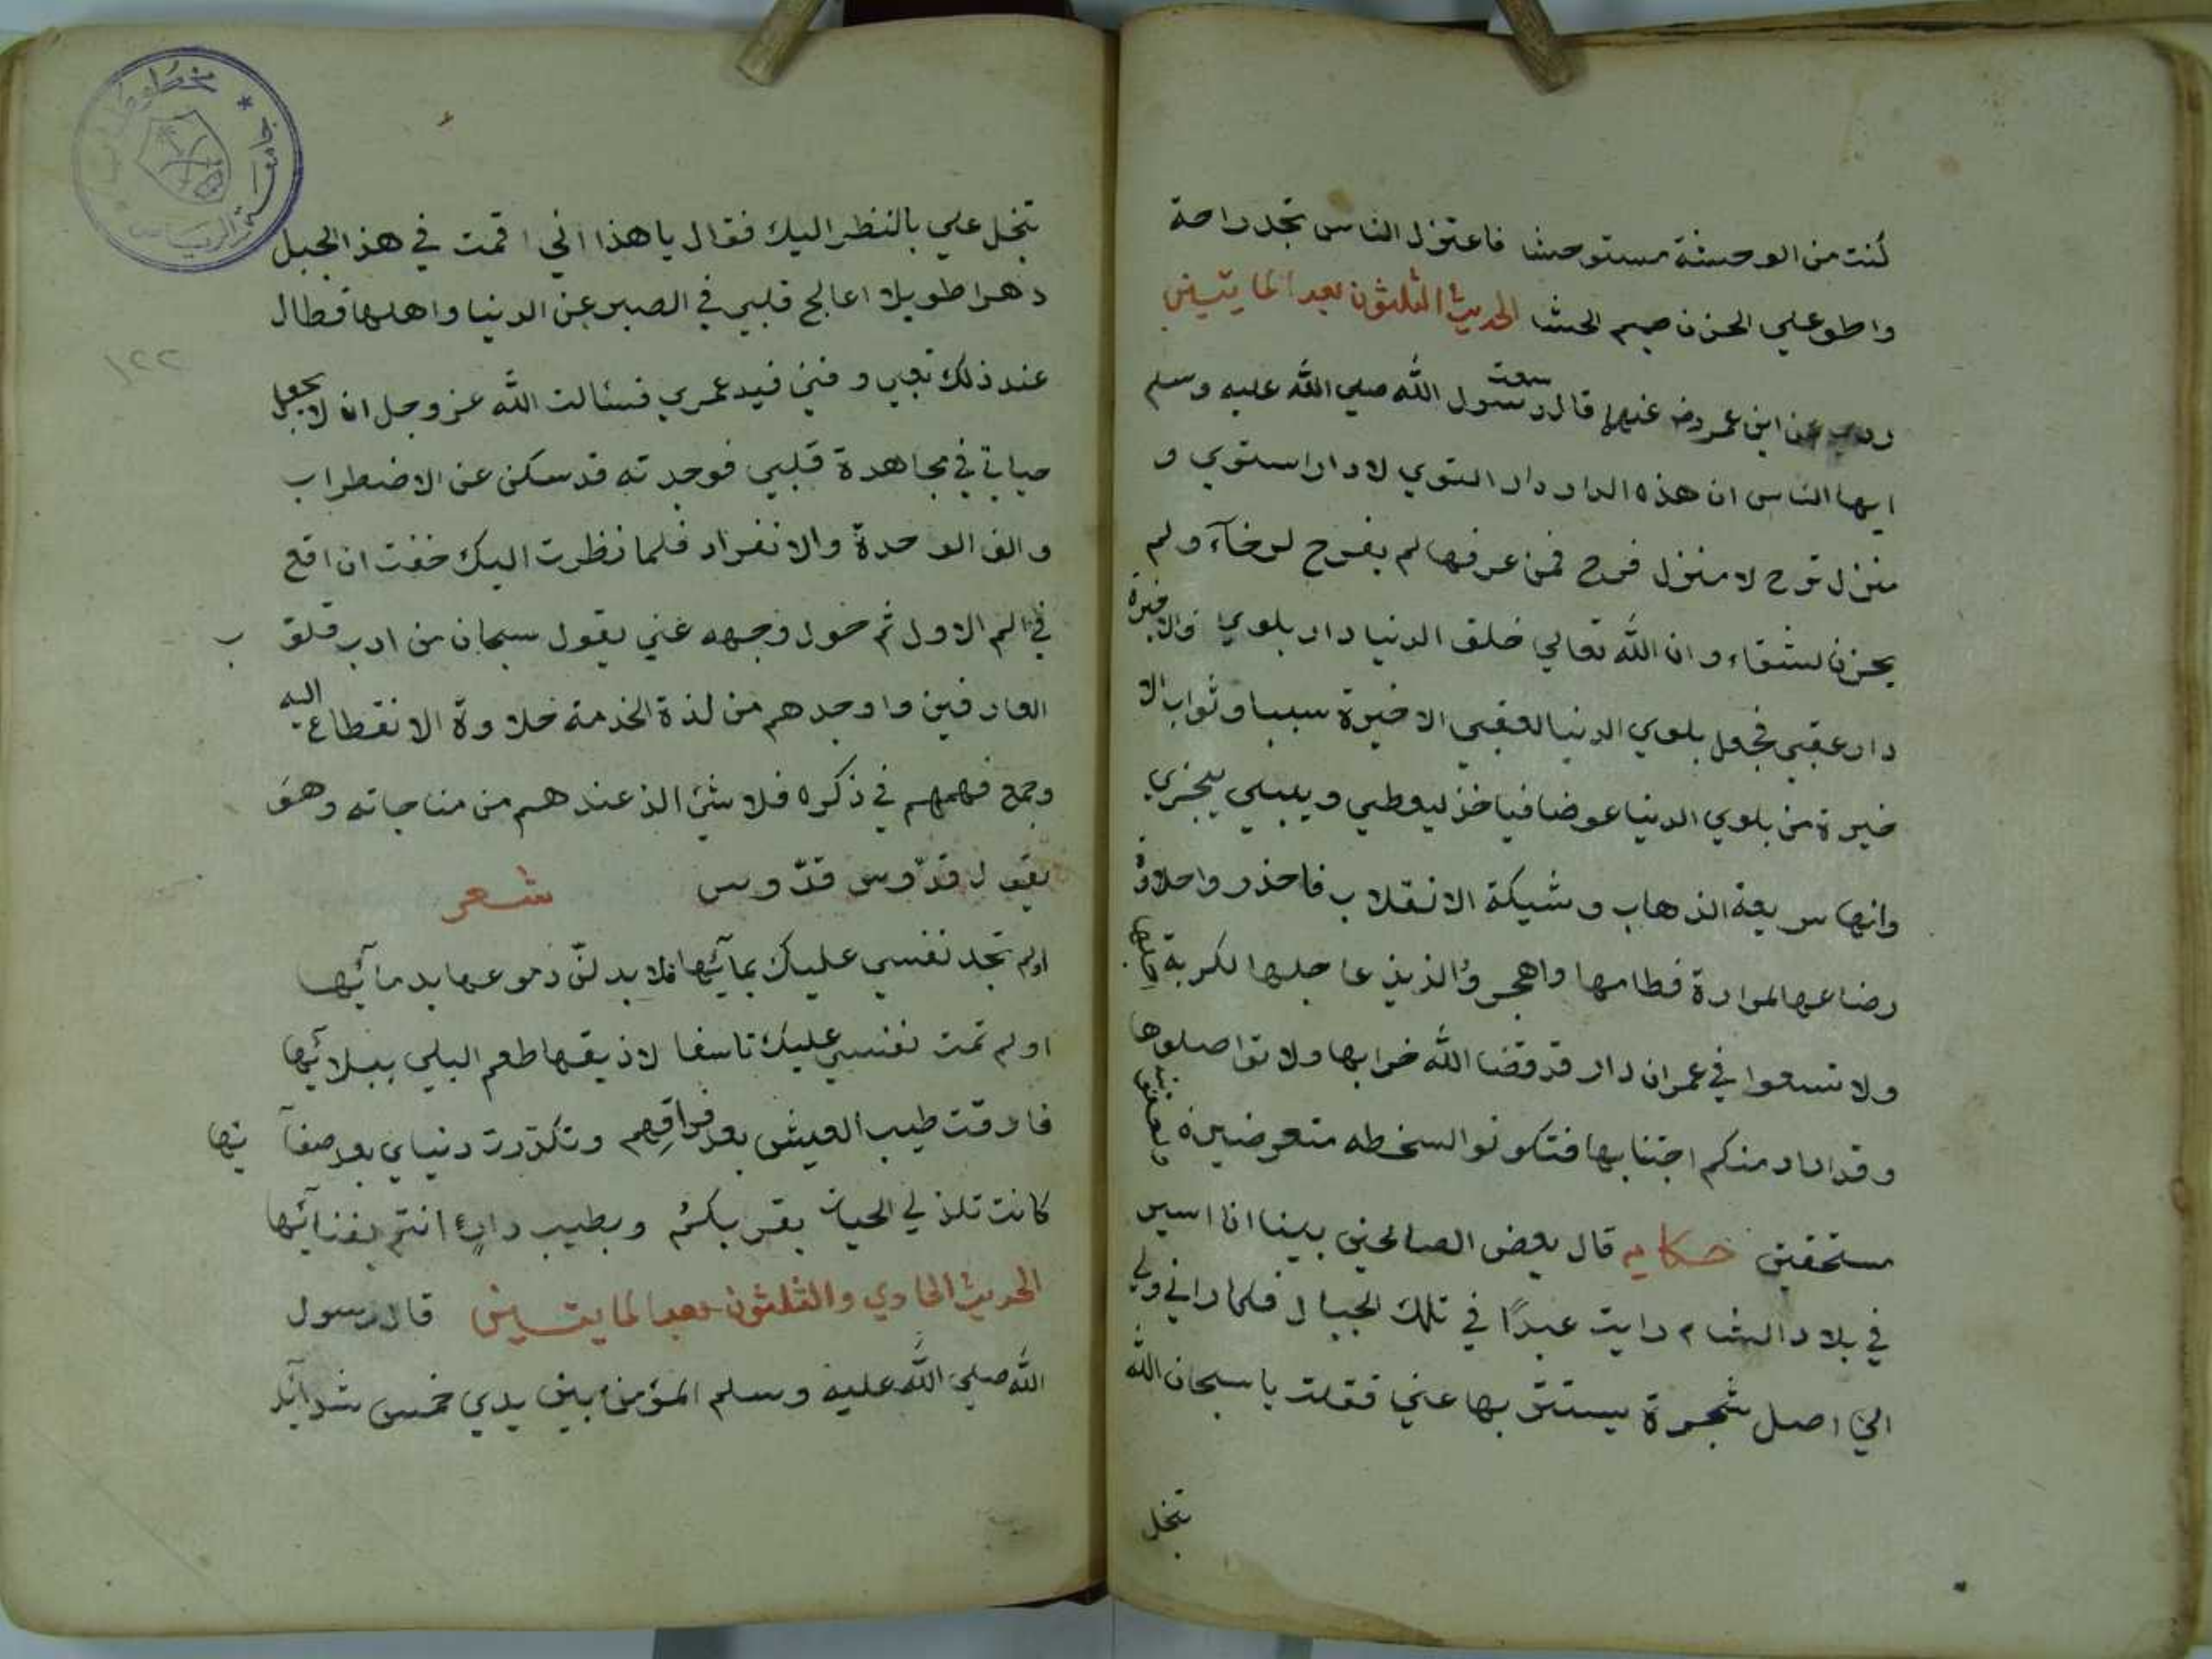 كنت من الوحشة مستوحشا فاعتزل الناس تجد راحة
واطو علي الحزن صميم الحشا الحديث الثلثون بعد المايتين
روي عن ابن عمر رض عنهما قال سمعت رسول الله صلي الله عليه وسلم
ايها الناس ان هذه الدار دار التوي لا دار استوي و
منزل ترح لا منزل فرح فمن عرفها لم يفرح لرخآء ولم
يحزن لشقاء وان الله تعالي خلق الدنيا دار بلوي والاخيرة
دار عقبي فجعل بلوي الدنيا لعقبي الاخيرة سببا وثواب الا
خيرة من بلوي الدنيا عوضا فياخذ ليعطي ويبلي يجزي
وانها سريعة الذهاب وشيكة الانقلاب فاحذر واحلاوة
رضاعها لمرارة فطامها واهجروا لذيذ عاجلها لكربة
ولا تسعوا في عمران دار قد قضا الله خرابها ولا تواصلوها
وقد اراد منكم اجتنابها فتكونوا لسخطه متعرضين
مستحقين حكايه قال بعض الصالحين بينا انا اسير
في بلاد الشام رايت عبدًا في تلك الجبال فلما راني ولي
الي اصل شجرة يستتر بها عني فقلت يا سبحان الله
تبخل
تبخل علي بالنظر اليك فقال يا هذا اني اقمت في هذ الجبل
دهرا طويلا اعالج قلبي في الصبر عن الدنيا واهلها فطال
١٢٢
عند ذلك تعبي وفني فيه عمري فسئالت الله عز وجل ان لا يجعل
حياتي في مجاهدة قلبي فوجدته قد سكن عن الاضطراب
والف الوحدة والانفراد فلما نظرت اليك خفت ان اقع
في الم الاول ثم حول وجهه عني يقول سبحان من ادب قلوب
العارفين واوجدهم من لذة الخدمة حلاوة الانقطاع اليه
وجمع فهمهم في ذكره فلا شئ الذ عندهم من مناجاته وهو
يقول قدّوس قدّوس شعر
اولم تجد نفسي عليك بمآئها فلابدلنّ دموعها بدمائها
اولم تمت نفسي عليك تاسفا لاذيقها طعم البلي ببلائها
فارقت طيب العيش بعد فراقهم وتكدّرت دنياي بعد صفآئها
كانت تلذ لي الحياة بقربكم وبطيب دارٍ انتم بفنآئها
الحديث الحادي والثلثون بعد المايتين قال رسول
الله صلي الله عليه وسلم المؤمن بين يدي خمس شدآئد